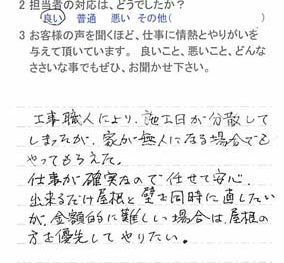 2 担当者の対応は、どうでしたか？
良い　普通　悪い　その他(　　　　　　　)
3 お客様の声を聞くほど、仕事に情熱とやりがいを
与えて頂いています。 良いこと、悪いこと、どんな
ささいな事でもぜひ、お聞かせ下さい。
工事職人により、施工日が分散して
しまったが、家が無人になる場合でも
やってもらえた。
仕事が確実なので任せて安心
出来るだけ屋根と壁を同時に直したい
が、金額的に難しい場合は、屋根の
方を優先してやりたい。